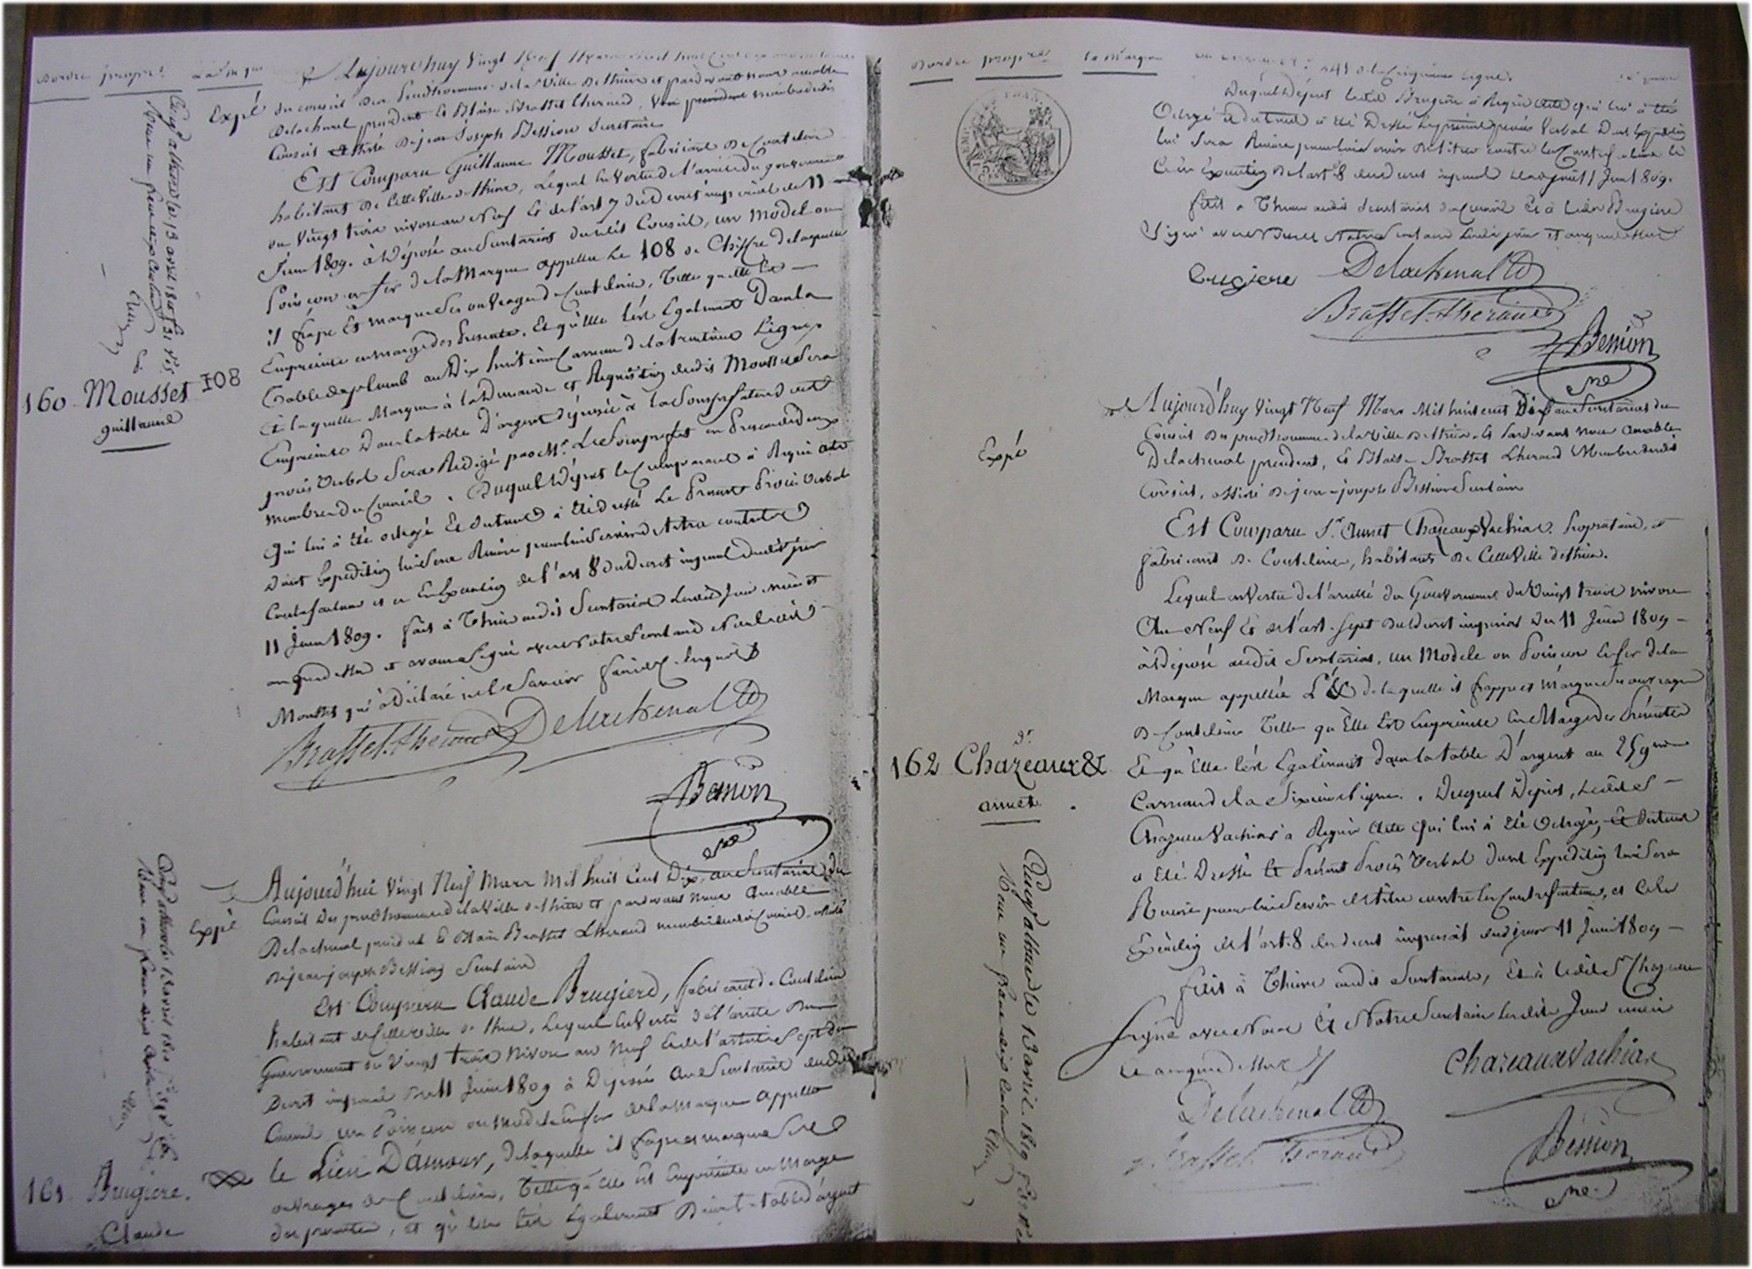 Aujourd'huy vingt Neuf
du conseil des Prudhommes de la Ville de Thiers et pardevant nous amable
Delachenal président et Blaise Brasset Lheraud, membre dudit
Conseil assisté de jean Joseph Bession Secrétaire
Est Comparu Guillaume Mousset, fabricant De Coutelerie
habitant de Cette Ville de Thiers, Lequel En Vertu de l'arrêté du gouvernement
du Vingt trois nivose an Neuf Et de l'art 7 du decret imperial du 11
Juin 1809. à Déposé au Secretariat dudit Conseil, un Model ou
Poinçon en fer de la Marque appellée Le 108 de Chiffre de laquelle
il frape Et marque Ses ouvrages de Coutelerie, Telle qu'elle Est
Empreinte en marge des Presentes. Et qu'Elle l'est Egalement Dans la
Table de plomb au Dix huitième Carreau de la trentième Lignes
Et laquelle Marque à la Demande et Requisition dudit Mousset Sera
Empreinte Dans la table D'argent déposée à la Sousprefecture dont
procès Verbal Sera Redigé par Mr. Le Sousprefet en Presence de deux
membres du Conseil. Duquel Dépot le Comparant à Requis acte
Qui lui à été octroyé Et du tout à été dressé Le Present Procès Verbal
Dont Expedition lui Sera Remise pour lui Servir de titre contre les
Contrefacteurs et ce En Execution de l'art 8 du Decret imperial dudit jour
11 Juin 1809. fait à Thiers audit Secretariat Lesdits Jour mois et
an que dessus et avons Signé avec Notre Secretaire Non ledit
Mousset qui à déclaré ne le Savoir faire de ce enquis
Brasset Lheraud Delachenal
Bession
Sre
Expé
160. Mousset 108
guillaume
Aujourd'hui Vingt Neuf Mars Mil huit Cent Dix, au Secretariat du
Conseil Des prudhommes de la Ville de Thiers et pardevant Nous Amable
Delachenal president Et Blaise Brasset Lheraud membre dudit Conseil, assisté
de jean joseph Bession Secretaire
Est Comparu Claude Brugiere, fabricant de Coutelerie
habitant de Cette Ville de Thiers, Lequel En Vertu de l'arrêté Du
Gouvernement du Vingt trois Nivose an Neuf Et de l'article Sept du
Decret imperial Du 11 Juin 1809 à Déposé au Secretariat dudit
Conseil un Poinçon ou Modele en fer de la Marque Appellée
le Lien D'amour, de laquelle il frape et marque Ses
ouvrages de Coutelerie, Telle qu'elle Est Empreinte en Marge
des presentes, et qu'Elle l'est Egalement Dans la table d'argent
Expé
161. Brugiere.
Claude
Duquel Dépot Ledit Brugière à Requis Acte qui lui à été
Octroyé et du tout à été Dressé Le présent procès Verbal Dont Expedition
lui Sera Remise pour lui Servir De titre contre les Contrefacteurs
Et ce En Execution De l'art 8 du decret imperial dudit jour 11 Juin 1809.
fait à Thiers audit Secretariat
brugiere Delachenal
Brasset Lheraud
Bession
Sre
Aujourd'huy Vingt Neuf Mars Mil huit cent Dix au Secretariat du
Conseil Des prudhommes de la Ville de Thiers Et Pardevant Nous Amable
Delachenal president, Et Blaise Brasset Lheraud Membre dudit
Conseil, assisté de jean-joseph Bession Secretaire
Est Comparu Sr. Annet Chazeaux Vachias Propriétaire, et
fabricant De Coutelerie, habitant De Cette Ville de Thiers.
Lequel en Vertu de l'arrêté du Gouvernement du Vingt trois nivose
An Neuf Et de l'art. sept du Decret imperial Du 11 Juin 1809
à déposé audit Secretariat, un Modele ou Poinçon En fer de la
Marque appellée L'& de laquelle il frappe et marque Ses ouvrages
de Coutelerie Telle qu'Elle Est Empreinte En Marge des Présentes
Et qu'Elle l'est Egalement Dans la table D'argent au 25eme
Carreau de la Sixieme Ligne. Duquel Dépot, Ledit Sr
Chazeaux Vachias à Requis Acte Qui lui à été Octroyé, Et du tout
a été Dressé Le Présent Procès Verbal dont Expedition lui Sera
Remise pour lui Servir de titre contre les Contrefacteurs, et Ce En
Execution de l'art. 8 du decret imperial dudit jour 11 Juin 1809
fait à Thiers audit Secretariat, Et à Ledit Sr Chazeaux
Signé avec Nous Et Notre Secretaire Lesdits Jour mois
Et an que dessus
Chazeaux Vachias
Delachenal
Brasset Lheraud
Bession
Sre
Expé
162 Chazeaux &
annet